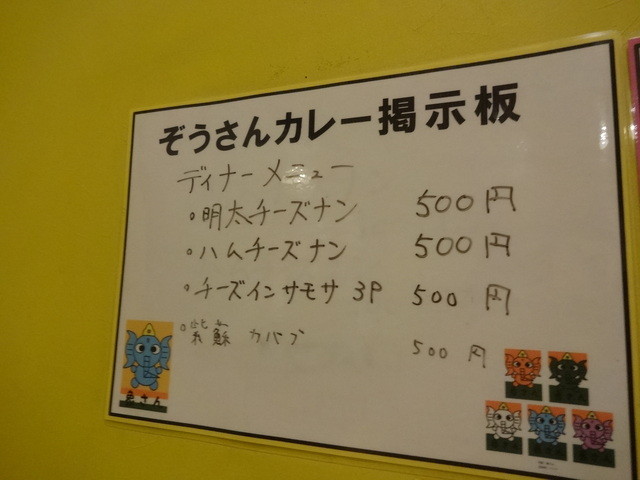 ぞうさんカレー掲示板
ディナーメニュー
・明太チーズナン 500円
・ハムチーズナン 500円
・チーズインサモサ 3P 500円
・紫蘇カバブ 500円
象さん